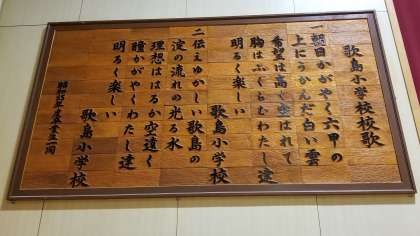 歌島小学校校歌
一 朝日かがやく六甲の
上にうかんだ白い雲
希望は高く空はれて
胸はふくらむわたし達
明るく楽しい
歌島小学校
二 伝えゆかしい歌島の
淀の流れの光る水
理想ははるか空遠く
瞳かがやくわたし達
明るく楽しい
歌島小学校
昭和45年度卒業生一同